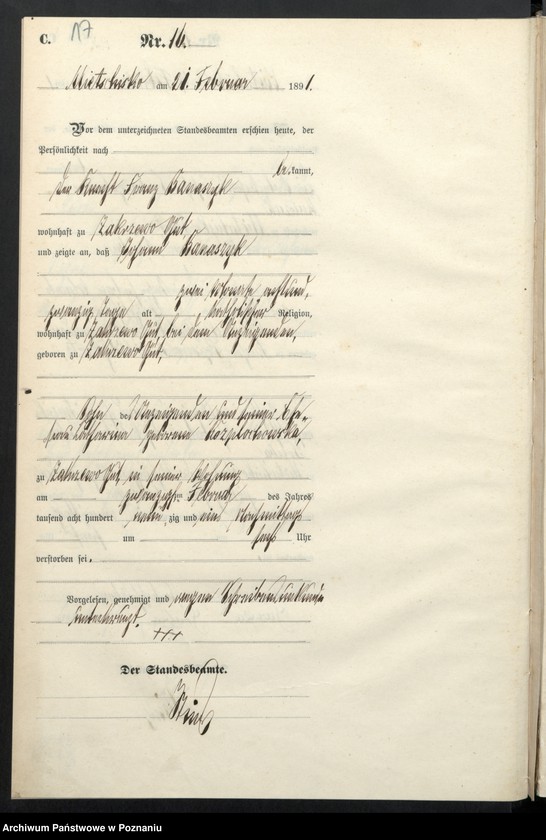 C. 17
Nr. 16.
Mietschisko am 21. Februar 1891.
Vor dem unterzeichneten Standesbeamten erschien heute, der
Persönlichkeit nach
bekannt,
der Knecht Franz Banaszyk
wohnhaft zu Zakrzewo Gut
und zeigte an, daß Johann Banaszyk
zwei Monate achtund-
zwanzig Tage alt, katholischer Religion,
wohnhaft zu Zakrzewo Gut, bei dem Anzeigenden,
geboren zu Zakrzewo Gut,
Sohn des Anzeigenden und seiner Ehe-
frau Katharina geborene
zu Zakrzewo Gut in seiner Wohnung
am zwanzigsten Februar des Jahres
tausend acht hundert neunzig und ein Nachmittags
um sechs Uhr
verstorben sei.
Vorgelesen, genehmigt und wegen Schreibensunkunde
unterkreuzt.
+++
Der Standesbeamte.
Archiwum Państwowe w Poznaniu